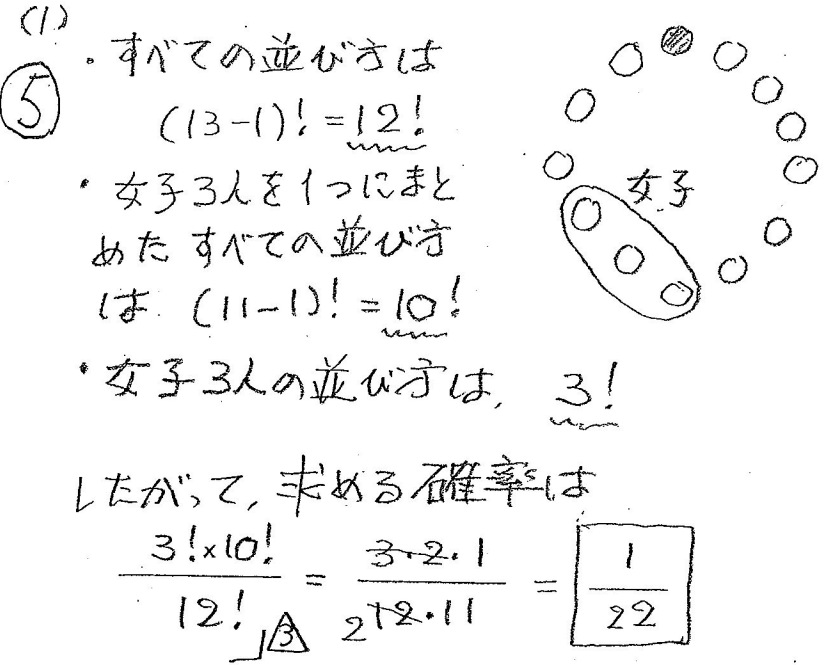 (1)
⑤
・すべての並び方は
(13-1)! = 12!
・女子3人を1つにまと
めた すべての並び方
は (11-1)! = 10!
・女子3人の並び方は, 3!
女子
したがって, 求める確率は
3!×10! / 12! = 3・2・1 / 12・11 = 1 / 22
2
3